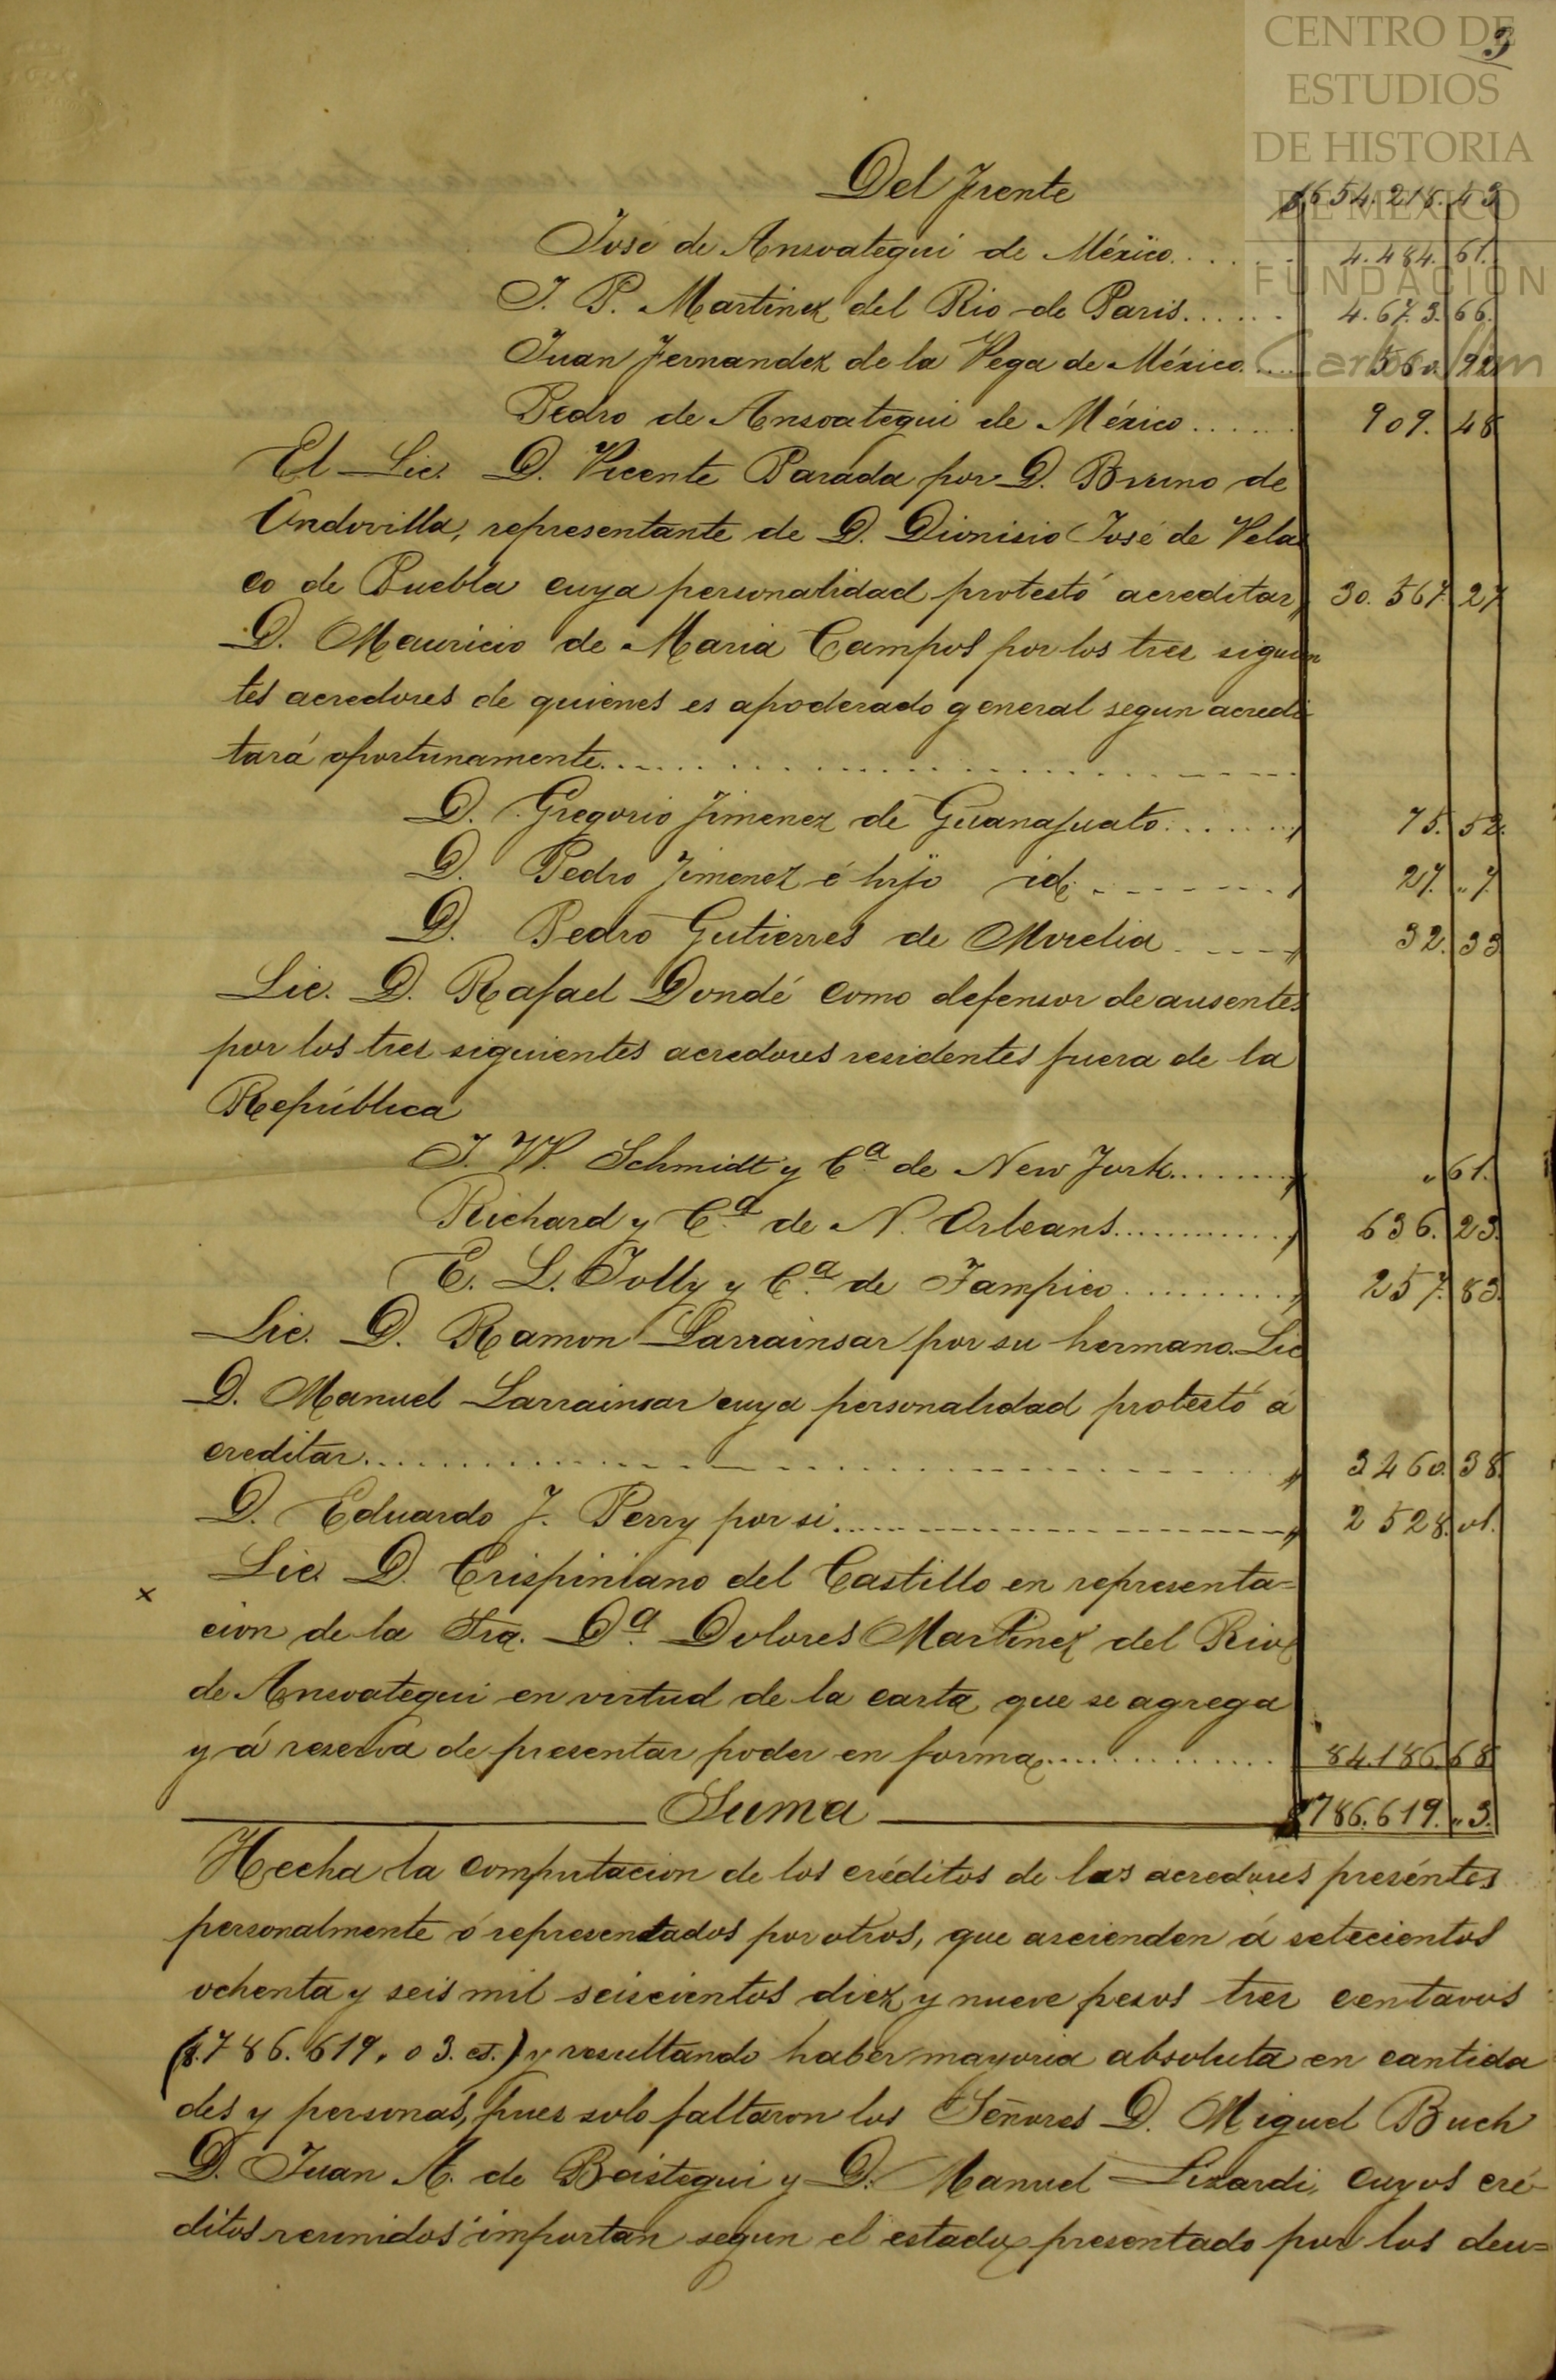 CENTRO DE
ESTUDIOS
DE HISTORIA
DE MÉXICO
FUNDACIÓN
Carlos Slim
3
Del frente $654.218.43
José de Ansoategui de México...... 4.484.61.
J. P. Martinez del Rio de Paris...... 4.673.66.
Juan Fernandez de la Vega de México.... 560.92
Pedro de Ansoategui de México...... 909.48
El Lic. D. Vicente Parada por D. Bruno de
Undovilla, representante de D. Dionisio José de Velas
co de Puebla cuya personalidad protestó acreditar, 30.567.27
D. Mauricio de Maria Campos por los tres siguien
tes acredores de quienes es apoderado general segun acredi
tará oportunamente....................
D. Gregorio Jimenez de Guanajuato....... 75.52.
D. Pedro Jimenez é hijo id. ....... 27. „ 7.
D. Pedro Gutierres de Morelia ..... 32.33
Lic. D. Rafael Dondé como defensor de ausentes
por los tres siguientes acredores residentes fuera de la
República
J. W. Schmidt y Cª de New York........ „ 61.
Richard y Cª de N. Orleans............ 636.23.
E. L. Jolly y Cª de Tampico.......... 257.83.
Lic. D. Ramon Larrainsar por su hermano Lic
D. Manuel Larrainsar cuya personalidad protestó a
creditar.................... 3460.38.
D. Eduardo J. Perry por si.................... 2528.01.
x Lic. D. Crispiniano del Castillo en representa=
cion de la Sra. Dª Dolores Martinez del Rio
de Ansoategui en virtud de la carta que se agrega
y á reserva de presentar poder en forma............. 84.186.68
Suma $786.619. „ 3.
Hecha la computacion de los créditos de los acredores presentes
personalmente ó representados por otros, que ascienden á setecientos
ochenta y seis mil seiscientos diez y nueve pesos tres centavos
($.786.619.03.cs.) y resultando haber mayoria absoluta en cantida
des y personas, pues solo faltaron los Señores D. Miguel Buch
D. Juan A. de Beistegui y D. Manuel Lizardi, cuyos cré-
ditos reunidos importan segun el estado presentado por los deu=